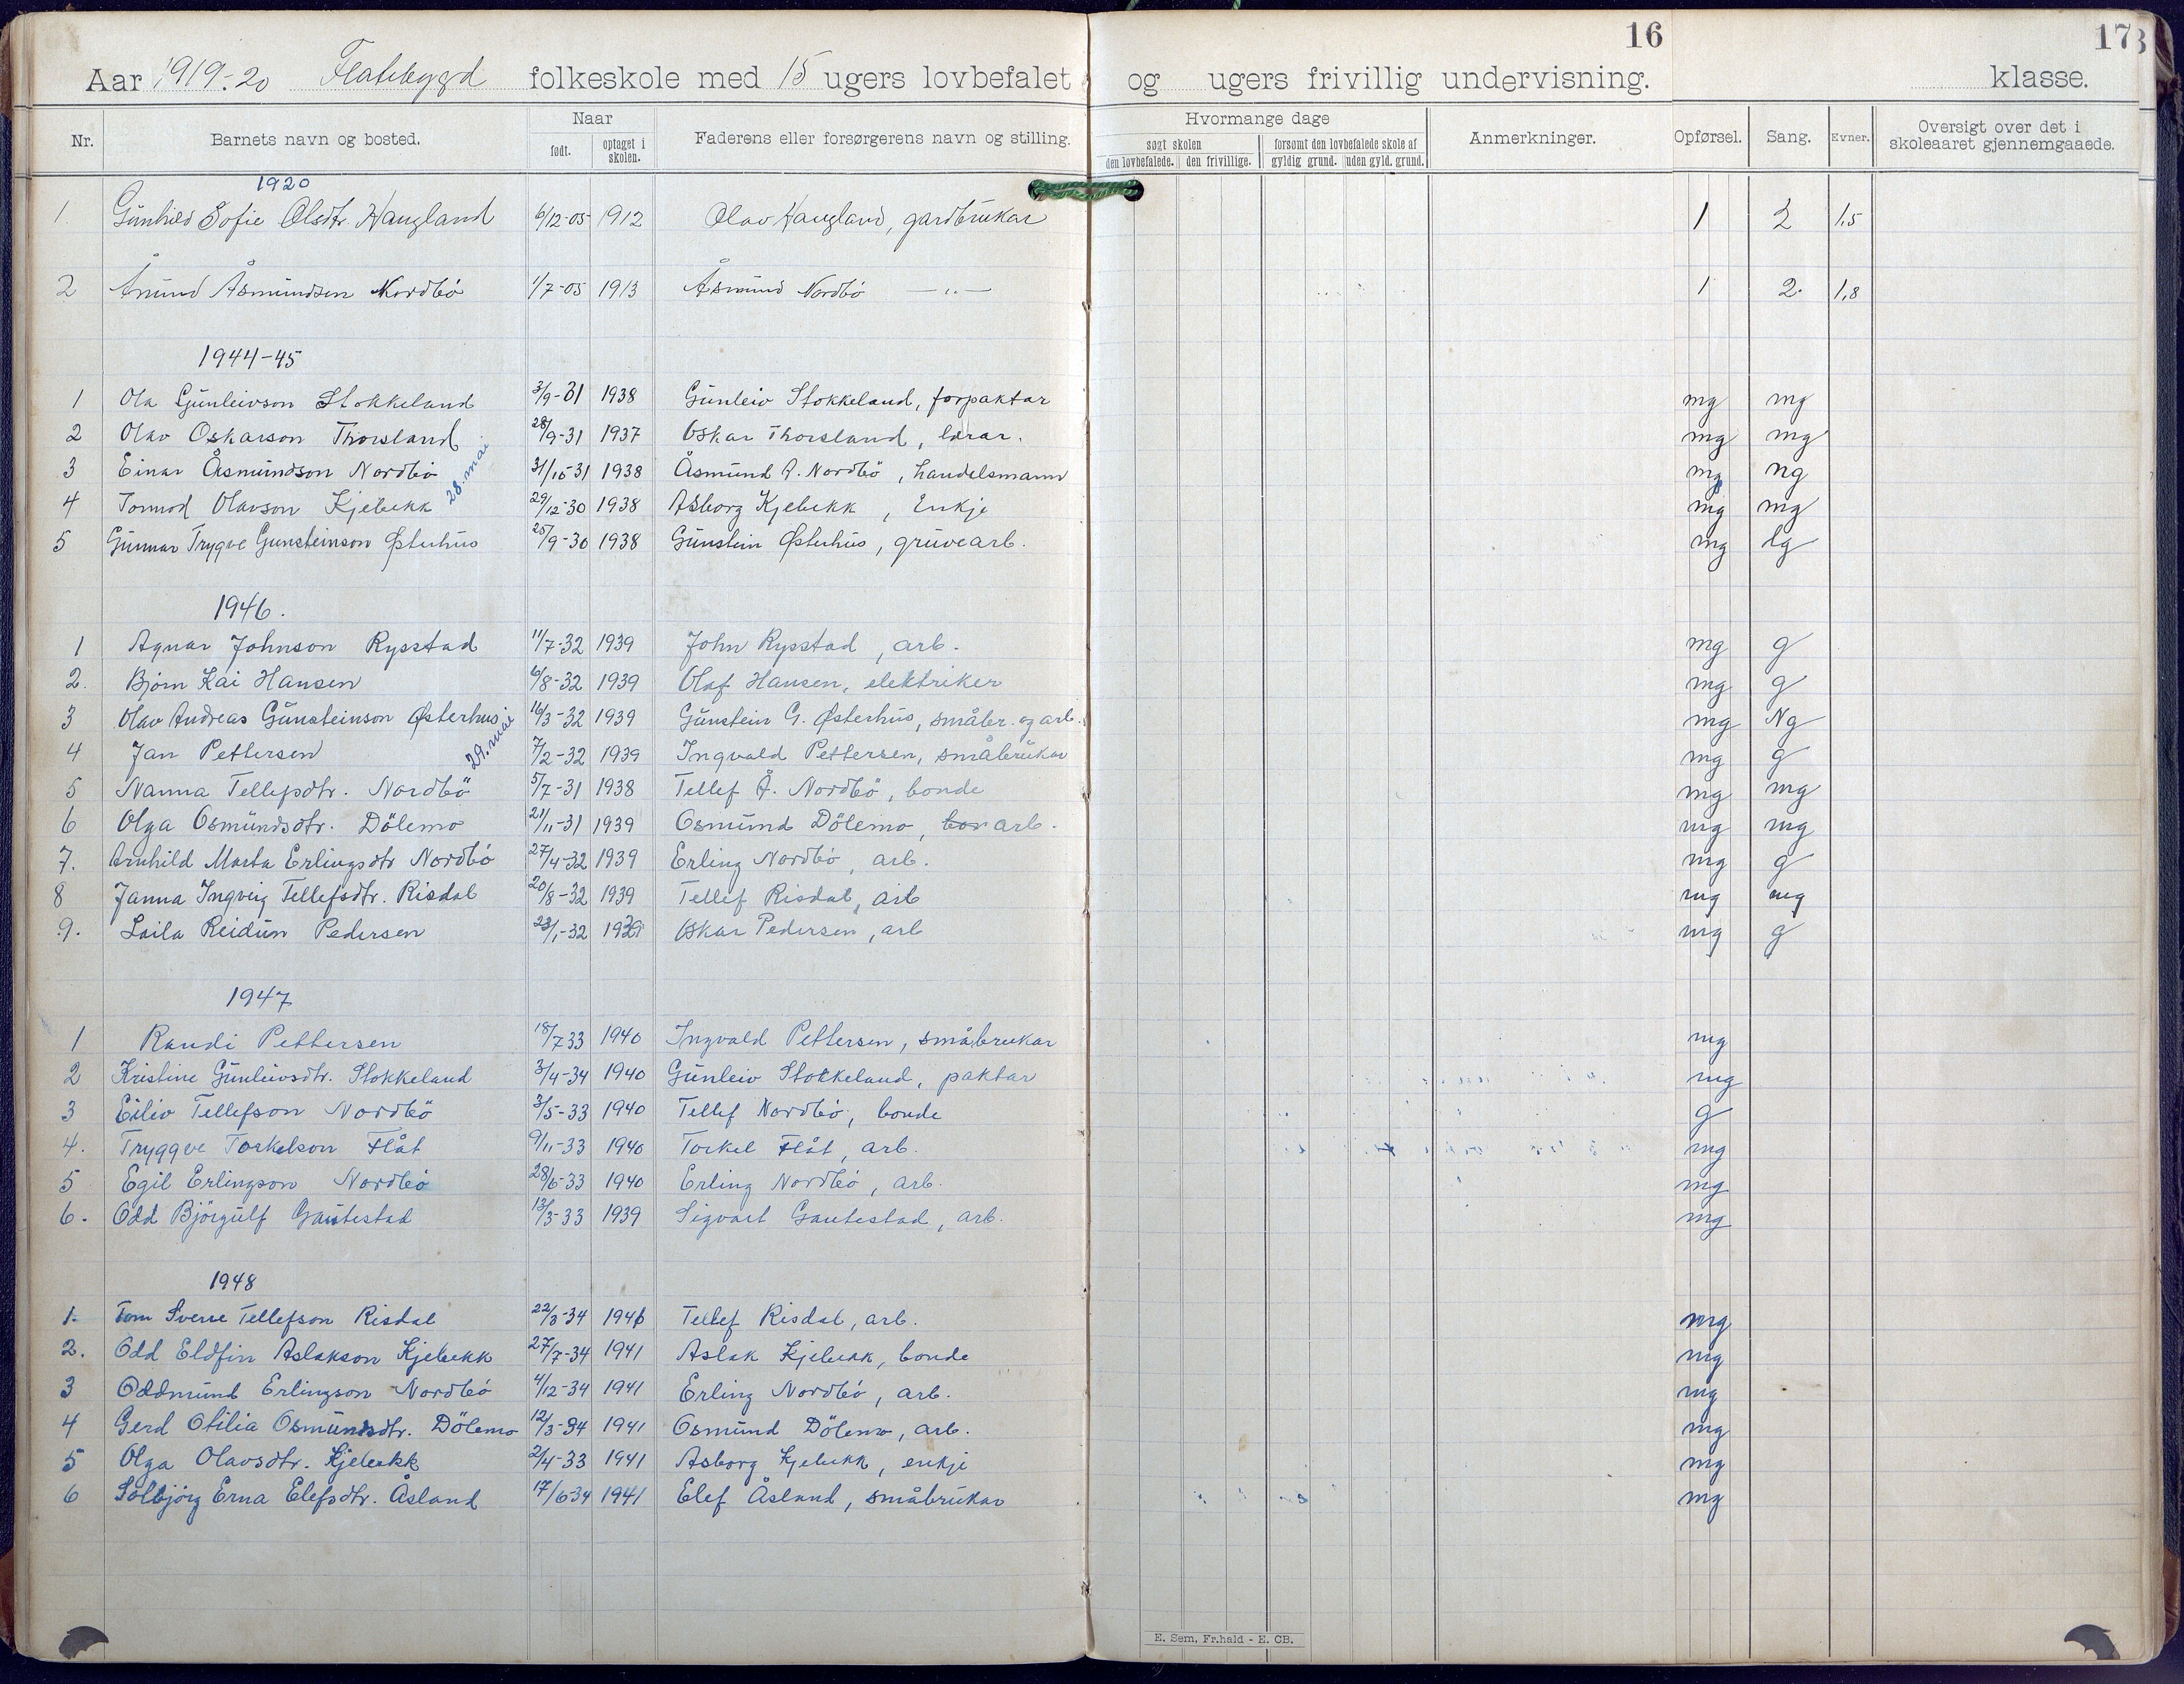 16
17
3
Aar 1919-20 Flatebygd folkeskole med 15 ugers lovbefalet og ugers frivillig undervisning. klasse.
Nr. Barnets navn og bosted. Naar født. optaget i skolen. Faderens eller forsørgerens navn og stilling. Hvormange dage søgt skolen den lovbefalede. den frivillige. forsømt den lovbefalede skole af gyldig grund. uden gyld. grund. Anmerkninger. Opførsel. Sang. Evner. Oversigt over det i skoleaaret gjennemgaaede.
1920
1. Gunhild Sofie Olsdtr. Haugland 6/12-05 1912 Olav Haugland, gardbrukar 1 2 1,5
2 Ånund Åsmundsen Nordbö 1/7-05 1913 Åsmund Nordbö —"— 1 2. 1,8
1944-45
1 Ola Gunleivson Stokkeland 3/9-31 1938 Gunleiv Stokkeland, forpaktar mg mg
2 Olav Oskarson Thorsland 28/9-31 1937 Oskar Thorsland, lærar. mg mg
3 Einar Åsmundson Nordbö 31/10-31 1938 Åsmund A. Nordbö, handelsmann mg ng
28. mai
4 Tormod Olavson Kjebekk 29/12-30 1938 Asborg Kjebekk, Enkje mg mg
5 Gunnar Trygve Gunsteinson Østerhus 25/9-30 1938 Gunstein Østerhus, gruvearb. mg lg
1946.
1 Agnar Johnson Rysstad 11/7-32 1939 John Rysstad, arb. mg g
2. Bjørn Kai Hansen 6/8-32 1939 Olaf Hansen, elektriker mg g
3 Olav Andreas Gunsteinson Østerhus 16/3-32 1939 Gunstein G. Østerhus, småbr. og arb. mg Ng
29. mai
4 Jan Pettersen 7/2-32 1939 Ingvald Pettersen, småbrukar mg g
5 Nanna Tellefsdtr. Nordbö 5/7-31 1938 Tellef Å. Nordbö, bonde mg mg
6 Olga Osmundsdtr. Dölemo 21/11-31 1939 Osmund Dölemo, bon arb. mg mg
7. Arnhild Marta Erlingsdtr Nordbö 27/4-32 1939 Erling Nordbö, arb. mg g
8 Janna Ingveig Tellefsdtr. Risdal 20/8-32 1939 Tellef Risdal, arb mg mg
9. Laila Reidun Pedersen 23/1-32 1939 Oskar Pedersen, arb mg g
1947
1 Randi Pettersen 18/7 33 1940 Ingvald Pettersen, småbrukar mg
2 Kristine Gunleivsdtr. Stokkeland 3/4-34 1940 Gunleiv Stokkeland, paktar mg
3 Eiliv Tellefson Nordbö 3/5-33 1940 Tellef Nordbö, bonde g
4. Tryggve Torkelson Flåt 9/11-33 1940 Torkel Flåt, arb. mg
5 Egil Erlingson Nordbö 28/6-33 1940 Erling Nordbö, arb. mg
6. Odd Björgulf Gautestad 13/3-33 1939 Sigvart Gautestad, arb. mg
1948
1. Tom Sverre Tellefson Risdal 22/3-34 1941 Tellef Risdal, arb. mg
2. Odd Eldfin Aslakson Kjebekk 27/7-34 1941 Aslak Kjebekk, bonde mg
3 Oddmund Erlingson Nordbö 4/12-34 1941 Erling Nordbö, arb. mg
4 Gerd Otilia Osmundsdtr. Dölemo 12/3-34 1941 Osmund Dölemo, arb. mg
5 Olga Olavsdtr. Kjebekk 2/4-33 1941 Asborg Kjebekk, enkje mg
6 Solbjörg Erna Elefsdtr. Åsland 17/6 34 1941 Elef Åsland, småbrukar mg
E. Sem, Fr.hald - E. CB.